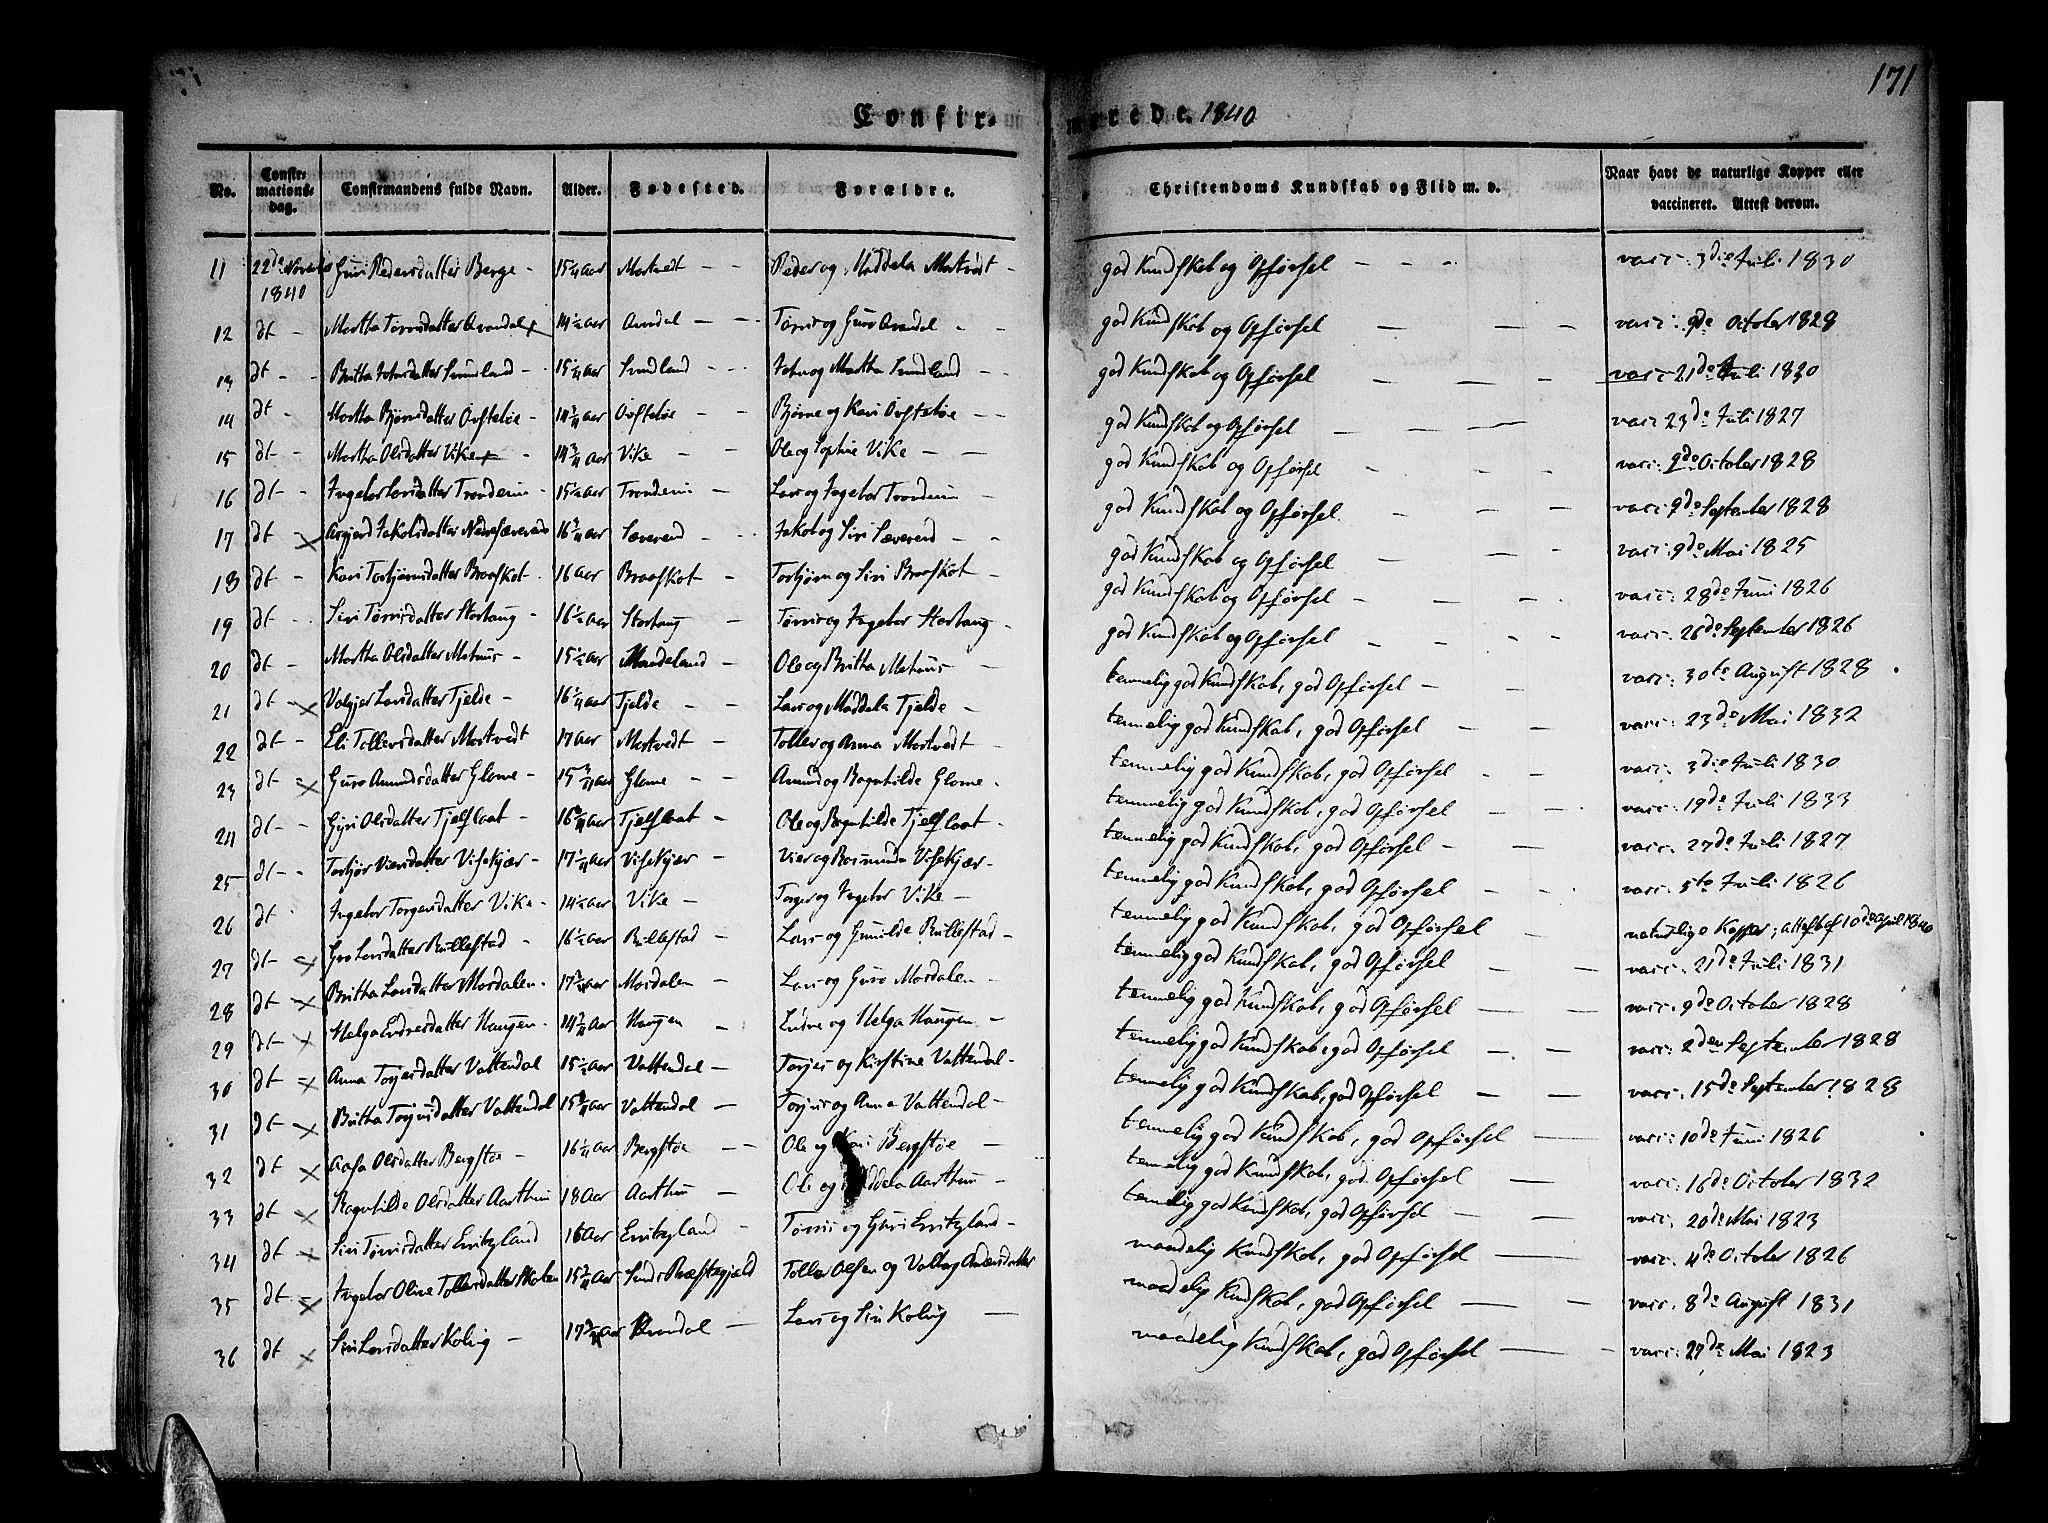 171
Confirmerede. 1840
No. Confirmationsdag. Confirmandens fulde Navn. Alder. Fødested. Forældre. Christendoms Kundskab og Flid m. v. Naar havt de naturlige Kopper eller vaccineret. Attest derom.
11 22de 1840 Guri Pedersdatter Berge - Mortvedt - - Peder og Maddela Mortvedt - god Kundskab og Opførsel - - - vacc: 3die Juli 1830
12 dt - Martha Tørrisdatter Qvandal 14 1/2 Aar Tørris og Guro Qvandal - - god Kundskab og Opførsel - - - vacc: 9de October 1828
13 dt - - Britha Johnsdatter Sundland - Sundland - - John og Martha Sundland - - god Kundskab og Opførsel - - - vacc 21de Juli 1830
14 dt - Martha Bjørnsdatter Østebøe - Bjørne og Kari - - god Kundskab og Opførsel - - - vacc 23de Juli 1827
15 dt - Martha Olsdatter Vike - 14 3/4 Aar Vike - Ole og Sophie Vike - - god Kundskab og Opførsel - - - vacc: 9de October 1828
16 dt - Ingebor Larsdatter - 15 1/2 Aar - Lars og Ingebor - god Kundskab og Opførsel - - - vacc: 9de September 1828
17 dt - x Jakobsdatter Aar Sævereid - - Jakob og Siri Sævereid - - god Kundskab og Opførsel - - - vacc: 9de Mai 1825
18 dt - Kari Torbjørnsdatter Braaskot 16 Aar Braaskot - Torbjørn og Siri Braaskot - god Kundskab og Opførsel - - - vacc: 28de Juni 1826
19 dt - Siri Tørrisdatter Storhaug - 16 1/2 Aar Storhaug - Tørris og Ingebor Storhaug - god Kundskab og Opførsel - - - vacc: 26de September 1826
20 dt - Martha Olsdatter - 15 1/2 Aar Mandeland - Ole og Britha - - temmelig god Kundskab, god Opførsel - - vacc: 30te August 1828
21 dt - x Larsdatter Tjelde - Aar Tjelde - - Lars og Maddela Tjelde - temmelig god Kundskab, god Opførsel - - vacc: 23de Mai 1832
22 dt - Eli Tollevsdatter Mortvedt 17 Aar Mortvedt - Tollev og Anna Mortvedt - temmelig god Kundskab, god Opførsel - - vacc: 3die Juli 1830
23 dt - x Guro Amundsdatter Glome - Aar Glome - - Amund og Ragnhilde Glome - temmelig god Kundskab, god Opførsel - - vacc: 19de Juli 1833
24 dt - - Gjøri Olsdatter Tjelflaat - Aar Tjelflaat - Ole og Ragnhilde Tjelflaat - temmelig god Kundskab, god Opførsel - - vacc: 27de Juli 1827
25 dt - - Viersdatter Visekjær - Aar Visekjær - Vier og Visekjær - temmelig god Kundskab, god Opførsel - - vacc: 5te Juli 1826
26 dt Ingebor Torgersdatter Vike - 14 1/2 Aar Vike - Torger og Ingebor Vike - temmelig god Kundskab, god Opførsel - naturlige Kopper, attest af 10de April 1840
27 dt - x Gro Larsdatter Rullestad - 16 1/2 Aar Rullestad - Lars og Gunilde Rullestad - temmelig god Kundskab, god Opførsel - - vacc: 21de Juli 1831
28 dt - x Britha Larsdatter Mosdalen - Aar Mosdalen - Lars og Guro Mosdalen - temmelig god Kundskab, god Opførsel - - vacc: 9de October 1828
29 dt - x Helga Endresdatter Haugen - Aar Haugen - Endre og Helga Haugen - temmelig god Kundskab, god Opførsel - - vacc: 2den September 1828
30 dt - x Anna Torjersdatter Vattendal 15 1/2 Aar Vattendal - Torjer og Kirstine Vattendal - temmelig god Kundskab, god Opførsel - - vacc: 15de September 1828
31 dt - x Britha Torjersdatter Vattendal Aar Vattendal - Torjer og Anna Vattendal - temmelig god Kundskab, god Opførsel - vacc: 10de Juni 1826
32 dt x Aasa Olsdatter Bergstøe - Aar Bergstøe - Ole og Kari Bergstøe - temmelig god Kundskab, god Opførsel - vacc: 16de October 1832
33 dt x Ragnhilde Olsdatter Aarthun 18 Aar Aarthun - Ole og Maddela Aarthun - temmelig god Kundskab, god Opførsel - - vacc: 20de Mai 1823
34 dt x Siri Tørrisdatter 16 Aar - Tørris og Guri - maadelig Kundskab, god Opførsel - - vacc: 4de October 1826
35 dt - x Ingebor Oline Tollevsdatter Aar Sunds Præstegjæld Tollev Olsen og maadelig Kundskab, god Opførsel - - vacc: 8de August 1831
36 dt x Siri Larsdatter Kolvig - Aar Qvandal - Lars og Siri Kolvig - maadelig Kundskab, god Opførsel - - vacc: 27de Mai 1823